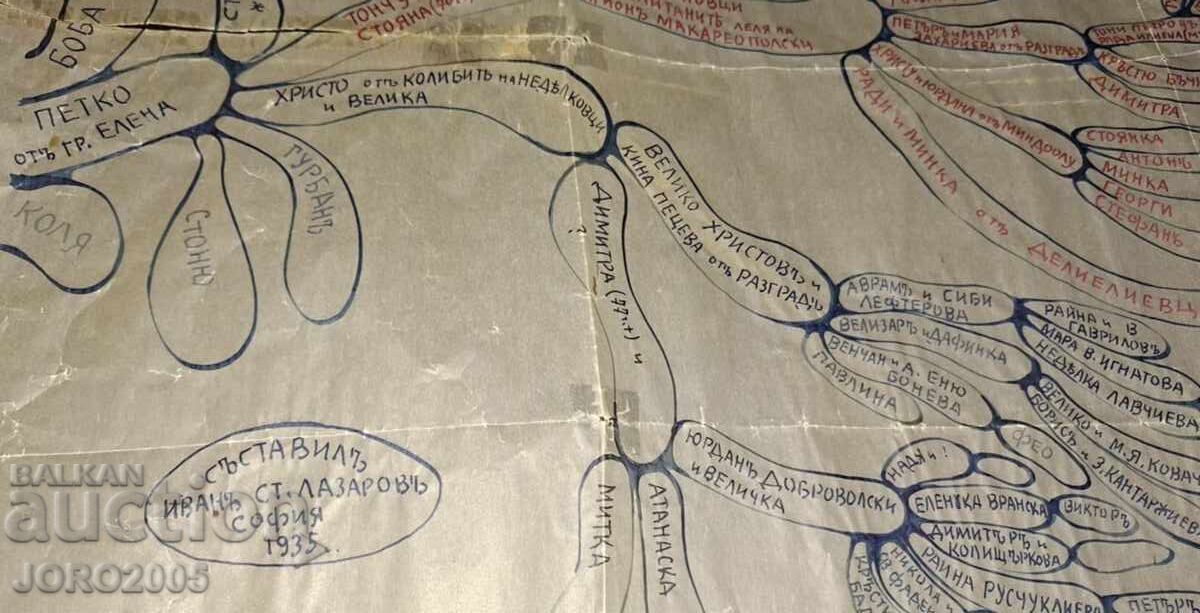 БОБА
СТ
ТОНЧУ
СТОЯНА
ОВЦИ
ПИТАНИТЬ ЛЕЛЯ НА
ИОНЪ МАКАРЕОПОЛСКИ
ПЕТЪРЪ И МАРИЯ
ЗАХАРИЕВА ОТЪ РАЗГРАДЪ
КРЪСТЮ БЪЧ
ДИМИТРА
ХРИСТУ И ЮРДАНА ОТЪ МИНДРОЛУ
СТОЯНКА
АНТОНЪ
МИНКА
ГЕОРГИ
СТЕФАНЪ
РАДИ И МИНКА ОТЪ ДЕЛИЕЛИЕВЦИ
ПЕТКО
ОТЪ ГР. ЕЛЕНА
ХРИСТО ОТЪ КОЛИБИТЬ НА НЕДѢЛКОВЦИ
И ВЕЛИКА
КОЛЯ
СТОЙНО
ГУРБАНЪ
ДИМИТРА (77 г.+) И
?
ВЕЛИКО ХРИСТОВЪ И
КИНА ПЕЦЕВА ОТЪ РАЗГРАДЪ
АВРАМЪ И СИБИ
ЛЕФТЕРОВА
РАЙНА И В
ГАВРИЛОВЪ
МАРА В. ИГНАТОВА
НЕДѢЛКА ЛАВЧИЕВА
ВЕЛИЗАРЪ И ДАФИНКА
ВЕЛИКО И М.Я. КОВАЧ
БОРИСЪ И З. КАНТАРЖИЕВА
ВЕНЧАН И Д. ЕНЮ
БОНЕВА
ФЕО
ПАВЛИНА
ЮРДАНЪ ДОБРОВОЛСКИ
И ВЕЛИЧКА
НАДЯ И !
ЕЛЕНКА ВРАНСКА
ВИКТОРЪ
ДИМИТЪРЪ И
КОЛИЩЪРКОВА
РАЙНА РУСЧУКЛИЕВ
ПЕТЪРЪ
НИКОЛА И
КРЪСТИ
МИТКА
АТАНАСКА
СЪСТАВИЛЪ
ИВАНЪ СТ. ЛАЗАРОВЪ
СОФИЯ
1935.
BALKAN
auction
JORO2005